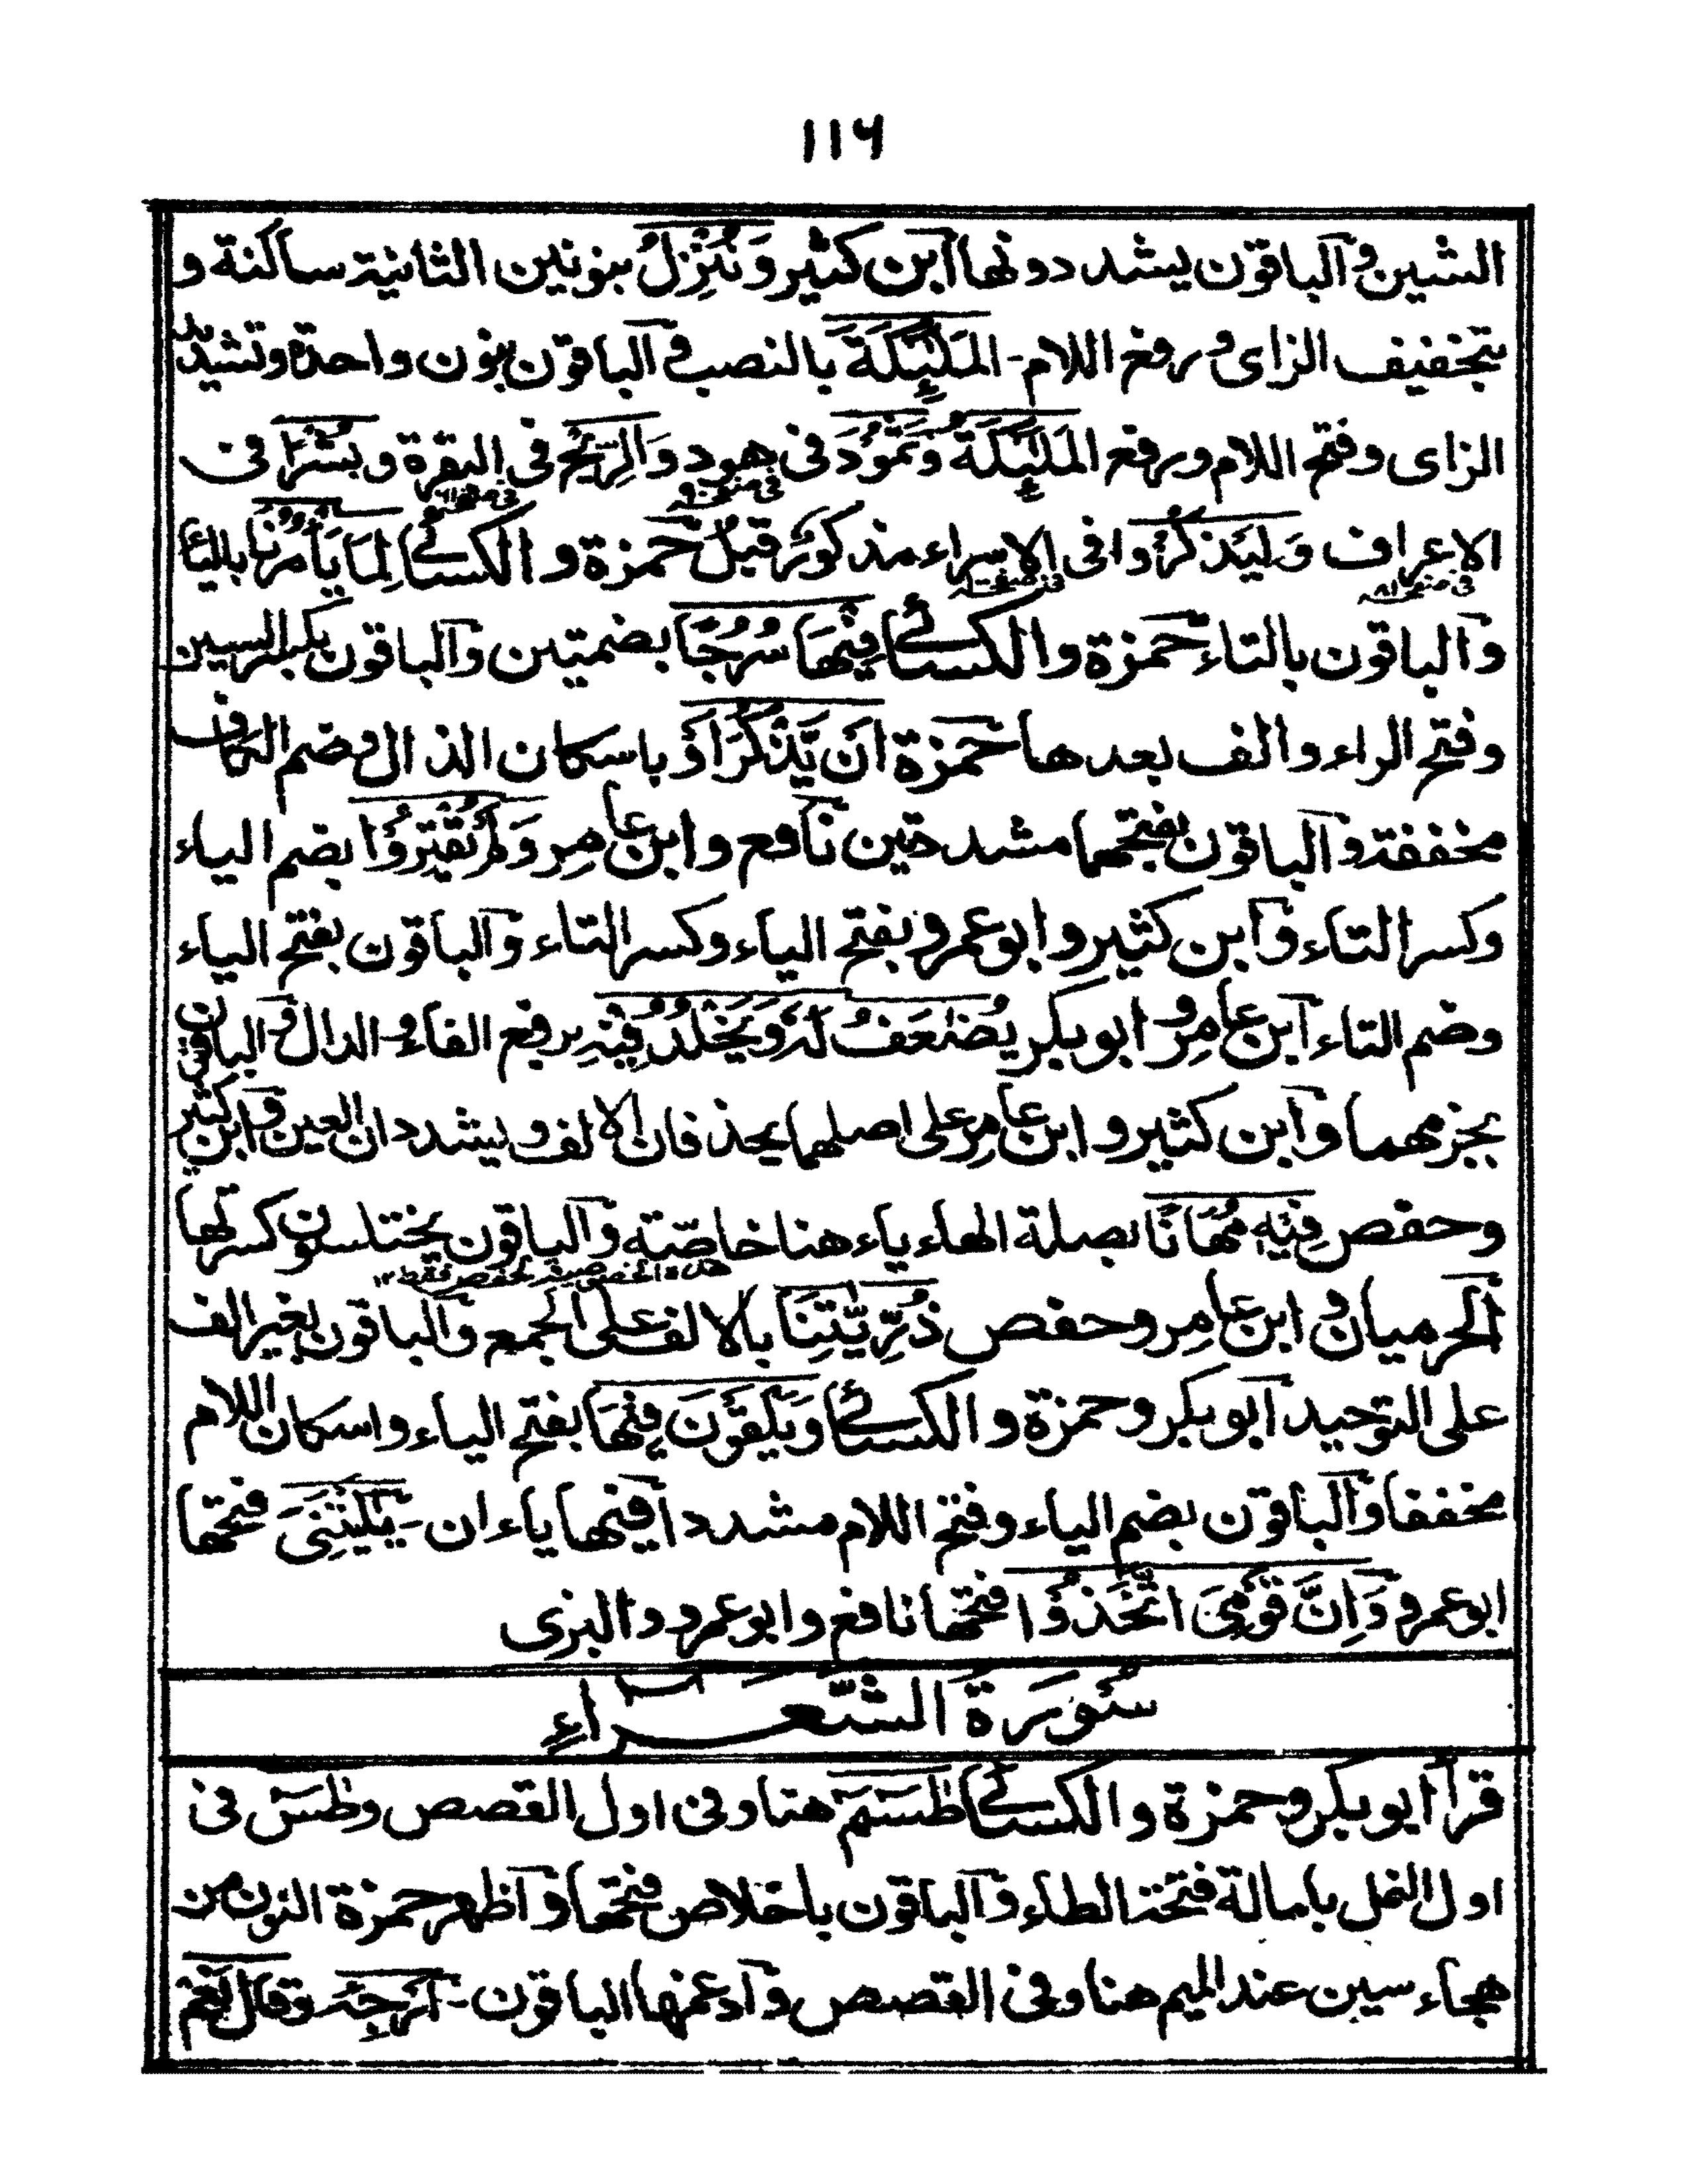 ١١٦
الشين والباقون يشددونها ابن كثير وَنُنْزِلُ بنونين الثانية ساكنة و
بتخفيف الزاى ورفع اللام- المَلٰٓئِكَةَ بالنصب والباقون بنون واحدة وتشديد
الزاى وفتح اللام ورفع المَلٰٓئِكَةُ وَثَمُوْدَ فى هود وَالرِّيْحَ فى البقرة و بُشْرًا فى
الاعراف وَلِيَذَّكَّرُوا فى الاسراء مذكور قبلُ حمزة و الكسائى لِمَا يَأْمُرُنَا بالياء
والباقون بالتاء حمزة والكسائى فِيْهَا سُرُجًا بضمتين والباقون بكسر السين
وفتح الراء والف بعدها حمزة اَنْ يَّذْكُرَ اَوْ باسكان الذال وضم الكاف
مخففة والباقون بفتحهما مشددتين نافع وابن عامر وَلَمْ يُقْتِرُوْا بضم الياء
وكسر التاء وابن كثير وابو عمرو بفتح الياء وكسر التاء والباقون بفتح الياء
وضم التاء ابن عامر و ابو بكر يُضٰعَفُ لَهٗ وَيَخْلُدُ فِيْهِ برفع الفاء والدال والباقون
بجزمهما وابن كثير و ابن عامر على اصلهما يحذفان الالف ويشددان العين وابن كثير
وحفص فِيْهٖ مُهَانًا بصلة الهاء ياء هنا خاصّة والباقون يختلسون كسرتها
الحرميان و ابن عامر وحفص ذُرِّيّٰتِنَا بالالف على الجمع والباقون بغير الف
على التوحيد ابو بكر وحمزة و الكسائى وَيَلْقَوْنَ فِيْهَا بفتح الياء واسكان اللام
مخففا والباقون بضم الياء وفتح اللام مشددا فيها ياءان- يٰلَيْتَنِىَ فتحها
ابو عمرو وَاِنَّ قَوْمِىَ اتَّخَذُوْا فتحها نافع وابو عمرو والبزى
سُوْرَةُ الشُّعَرَاءِ
قرأ ابو بكر وحمزة و الكسائى طٰسٓمٓ هنا وفى اول القصص وطٰسٓ فى
اول النمل بامالة فتحة الطاء والباقون باخلاص فتحها واظهر حمزة النون من
هجاء سين عند الميم هنا وفى القصص وادغمها الباقون- اَرْجِهْ وقال نَعَمْ